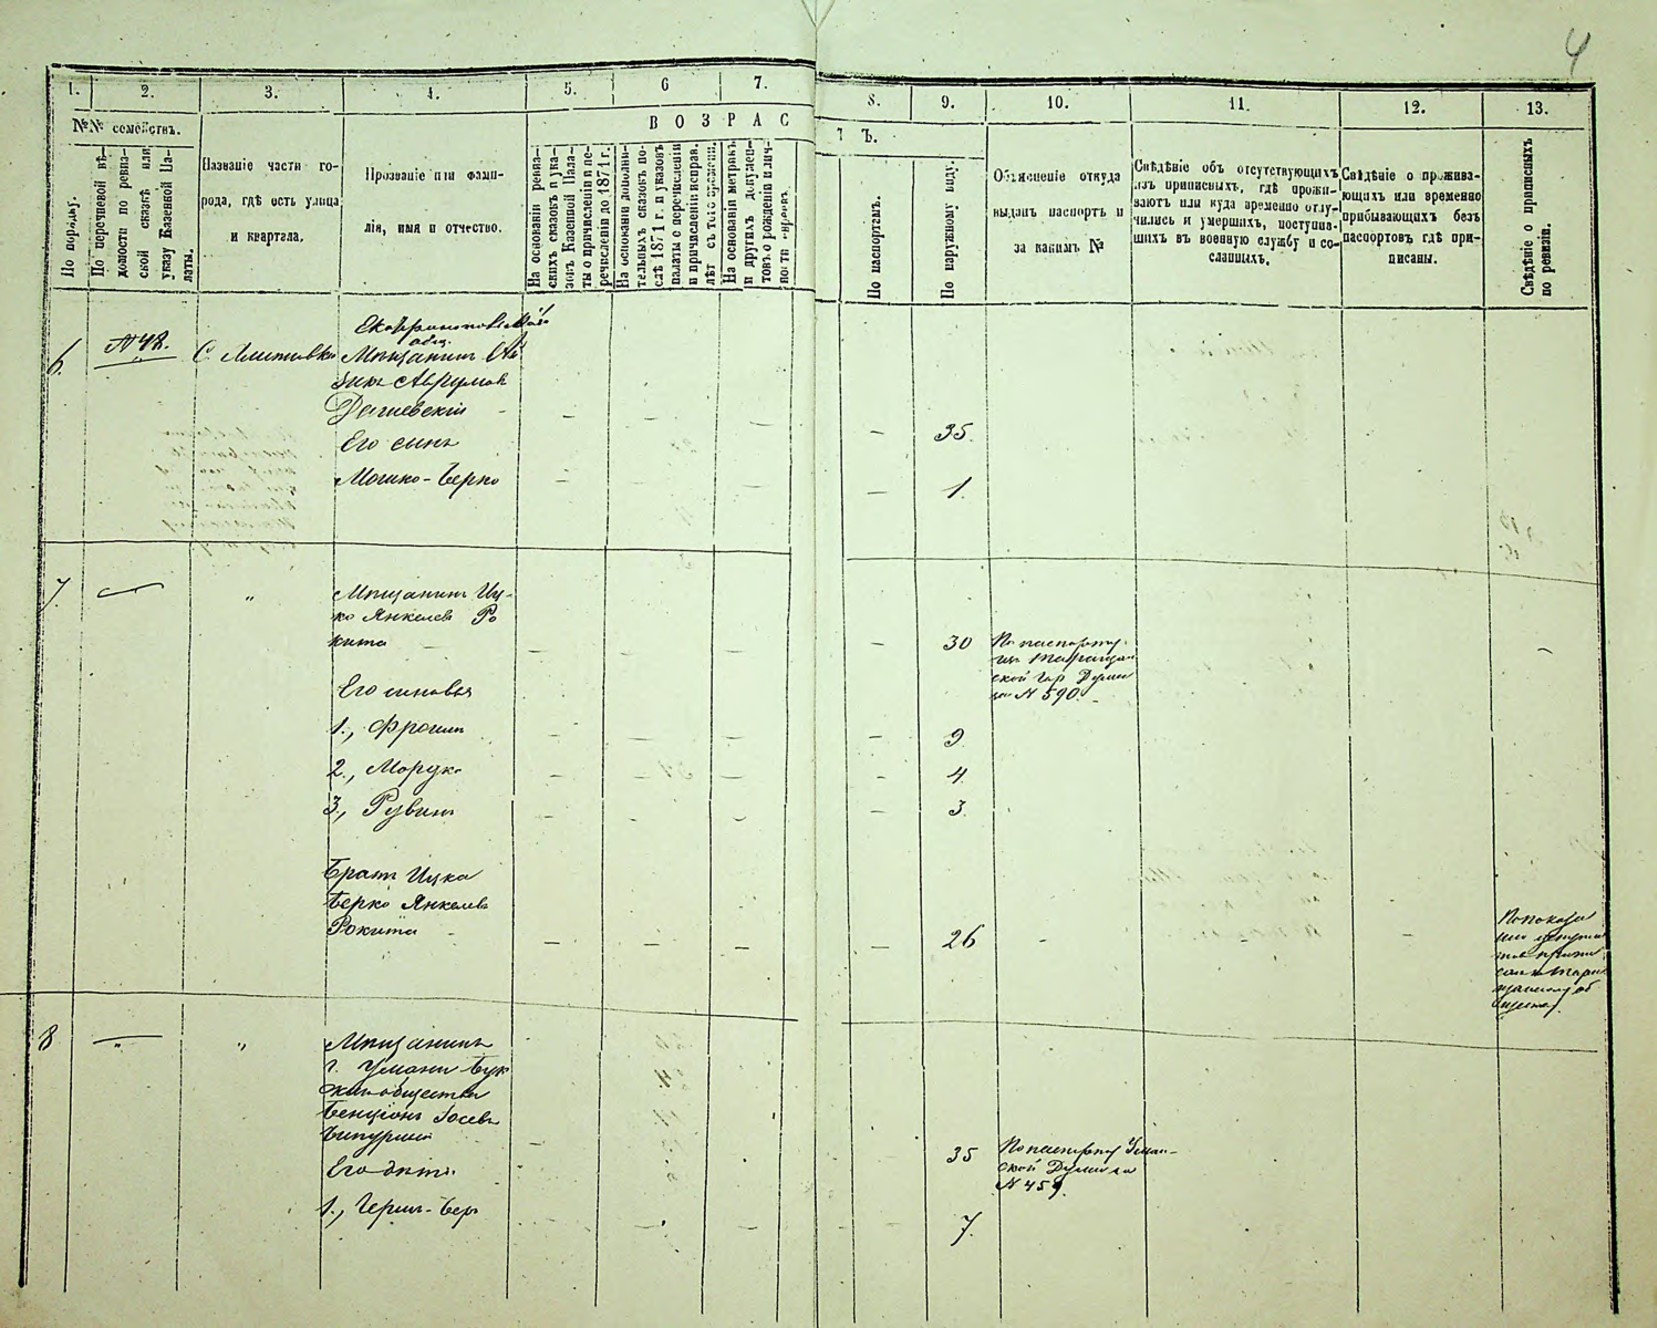 4
1.
2.
3.
4.
5.
6
7.
8.
9.
10.
11.
12.
13.
№№ семействъ.
ВОЗРАС
ТЪ.
По порядку.
По перечневой вѣ-
домости по ревиз-
ской сказкѣ или
указу Казенной Па-
латы.
Названіе части го-
рода, гдѣ есть улица
и квартла.
Прозваніе или фами-
лія, имя и отчество.
На основаніи ревиз-
скихъ сказокъ и ука-
зовъ Казенной Пала-
ты о причисленіи и пе-
речисленіи до 1871 г.
На основаніи дополни-
тельныхъ сказокъ по-
слѣ 1871 г. и указовъ
палаты о перечисленіи
и причисленіи исправ.
лѣт съ того времени.
На основаніи метрикъ
и другихъ докумен-
товъ о рожденіи и лич-
ности евреевъ.
По паспортамъ.
По наружному виду.
Объясненіе откуда
выданъ паспортъ и
за какимъ №
Свѣдѣніе объ отсутствующихъ
изъ приписныхъ, гдѣ прожи-
ваютъ или куда временно отлу-
чились и умершихъ, поступив-
шихъ въ военную службу и со-
сланныхъ.
Свѣдѣніе о прожива-
ющихъ или временно
прибывающихъ безъ
паспортовъ гдѣ при-
писаны.
Свѣдѣніе о приписныхъ
по ревизіи.
6.
№ 48.
общ.
Мѣщанинъ
Аврумовъ
Его сынъ
Мошко-Берко
35.
1.
7.
"
Мѣщанинъ Иц-
ко Янкелевъ Ро
кита
30
По паспорту
ской Гор Думы
за № 590.
Его сыновья
1., Фроимъ
9
2., Мордко
4
3., Рувинъ
3.
Братъ Ицка
Берко Янкелевъ
Рокита
26
8
"
"
Мѣщанинъ
г. Умани
общества
Бенціонъ Іосевъ
35
По паспорту Уман-
ской Думы за
№ 459.
Его дѣти
1., Гершъ-Беръ
7.